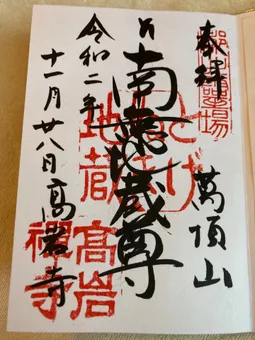 奉拝
萬頂山
南無地蔵尊
令和二年
十一月廿八日
高岩寺
とげぬき
地蔵
高岩
禅寺